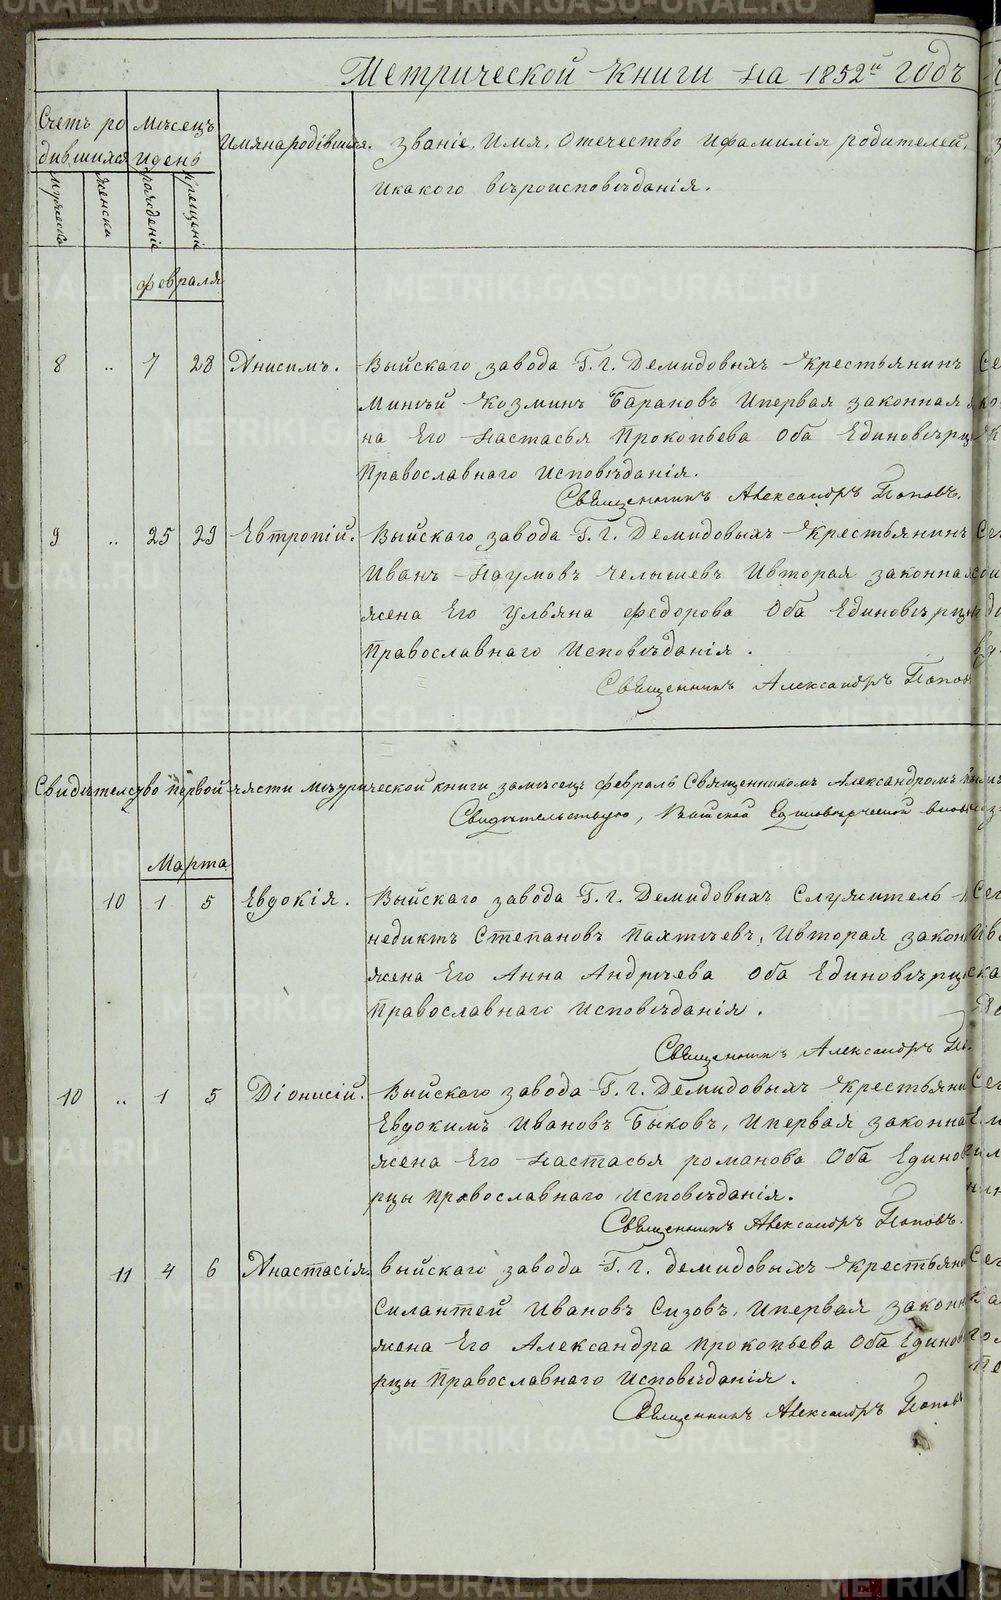 Метрической книги на 1852й годъ
Счетъ ро
дившихся
Мѣсецъ
и день
Имяна родівшихъ.
Званіе, Имя, Отечество и фамилія родителей,
и какого вѣроисповѣданія.
Мужеска
Женска
рожденіе
крещеніе
Февраля
8 .. 7 28 Анисимъ. Выйскаго завода Г. г. Демидовыхъ крестьянинъ
Минѣй Козминъ Барановъ и первая законная
на Его Настасья Прокопьева оба Единовѣрцы
Православнаго исповѣданія.
Священникъ Александръ Поповъ.
9 .. 25 29 Евтропій. Выйскаго завода Г. г. Демидовыхъ крестьянинъ
Иванъ Наумовъ Челышевъ и вторая законная
жена Его Ульяна Федорова оба Единовѣрцы
Православнаго исповѣданія.
Священникъ Александръ Попов
Свидѣтелство первой части мѣтрической книги за мѣсецъ февраль Священникомъ Александромъ
Свидѣтельствую,
Марта
10 1 5 Евдокія. Выйскаго завода Г. г. Демидовыхъ Служитель
недиктъ Степановъ и вторая закон
жена Его Анна Андрѣева оба Единовѣрцы
Православнаго исповѣданія.
Священникъ Александръ По
10 .. 1 5 Діонисій. Выйскаго завода Г. г. Демидовыхъ крестьяни
Евдокимъ Ивановъ Быковъ, и первая законна
жена Его Настасья Романова оба Единовѣ
рцы православнаго исповѣданія.
Священникъ Александръ Поповъ.
11 4 6 Анастасія. Выйскаго завода Г. г. Демидовыхъ крестьяни
Силантей Ивановъ Сизовъ, и первая законн
жена Его Александра Прокопьева оба Единов
рцы Православнаго исповѣданія.
Священникъ Александръ Попов
METRIKI.GASO-URAL.RU